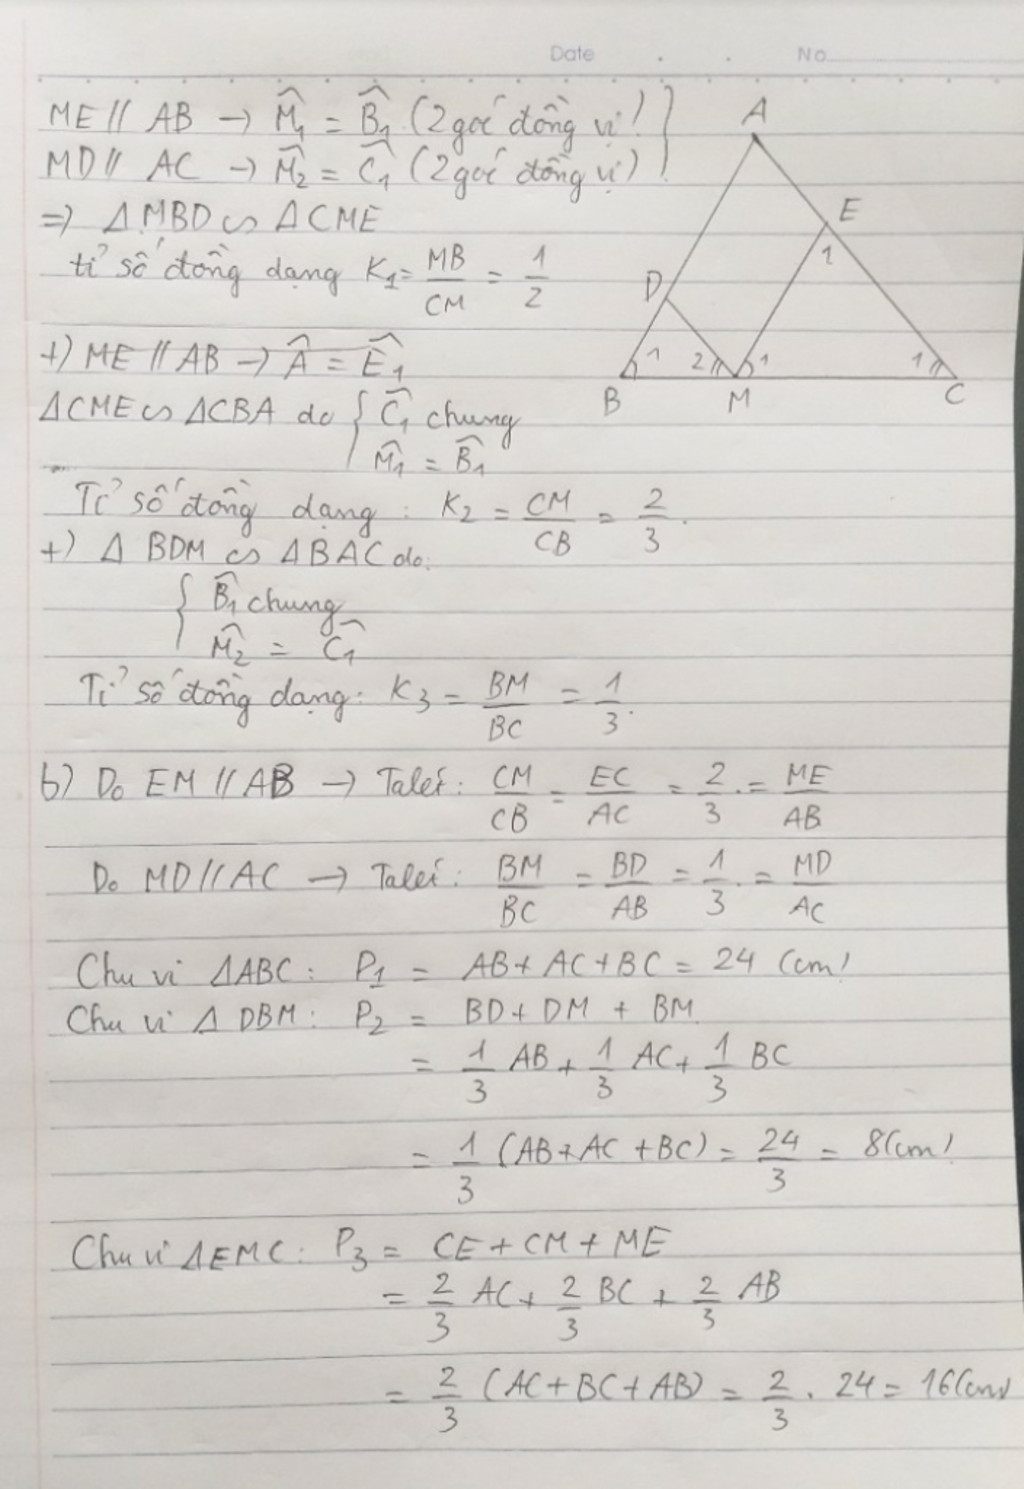 Date . . No
ME // AB → M̂₁ = B̂₁ (2 góc đồng vị) }
MD // AC → M̂₂ = Ĉ₁ (2 góc đồng vị) }
=> ΔMBD ∽ ΔCME
tỉ số đồng dạng K₁ = MB/CM = 1/2
+) ME // AB → Â = Ê₁
ΔCME ∽ ΔCBA do { Ĉ₁ chung
M̂₁ = B̂₁
Tỉ số đồng dạng : K₂ = CM/CB = 2/3.
+) Δ BDM ∽ ΔBAC do:
{ B̂₁ chung
M̂₂ = Ĉ₁
Tỉ số đồng dạng: K₃ = BM/BC = 1/3.
b) Do EM // AB → Talét: CM/CB = EC/AC = 2/3. = ME/AB
Do MD // AC → Talét: BM/BC = BD/AB = 1/3. = MD/AC
Chu vi ΔABC: P₁ = AB + AC + BC = 24 (cm)
Chu vi Δ DBM: P₂ = BD + DM + BM
= 1/3 AB + 1/3 AC + 1/3 BC
= 1/3 (AB + AC + BC) = 24/3 = 8(cm)
Chu vi ΔEMC: P₃ = CE + CM + ME
= 2/3 AC + 2/3 BC + 2/3 AB
= 2/3 (AC + BC + AB) = 2/3 . 24 = 16(cm)
A
E
1
D
1 2 1 1
B M C